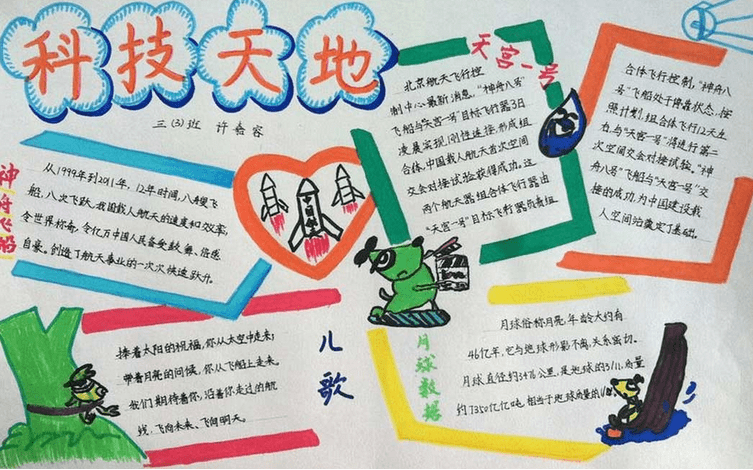 科技天地
三(3)班 许春容
神舟飞船
从1999年到2011年,12年时间,八艘飞
船,八次飞跃,我国载人航天的速度和效率,
令世界称奇,令亿万中国人民备受鼓舞、倍感
自豪。创造了航天事业的一次次快速跃升。
中国航天
天宫一号
北京航天飞行控
制中心最新消息,“神舟八号”
飞船与“天宫一号”目标飞行器3日
凌晨实现刚性连接,形成组
合体,中国载人航天首次空间
交会对接试验获得成功。这
两个航天器组合体飞行器由
“天宫一号”目标飞行器负责组
合体飞行控制,“神舟八
号”飞船处于停靠状态,按
照计划,组合体飞行12天左
右,与“天宫一号”将进行第二
次空间交会对接试验。“神
舟八号”飞船与“天宫一号”交
接的成功,为中国建设载
人空间站奠定了基础。
儿歌
捧着太阳的祝福,你从太空中走来;
带着月亮的问候,你从飞船上走来。
我们期待着你,沿着你走过的航
线,飞向未来、飞向明天。
月球数据
月球俗称月亮,年龄大约有
46亿年,它与地球形影不离,关系密切。
月球直径约3476公里,是地球的3/11,质量
约7350亿亿吨,相当于地球质量的1/81